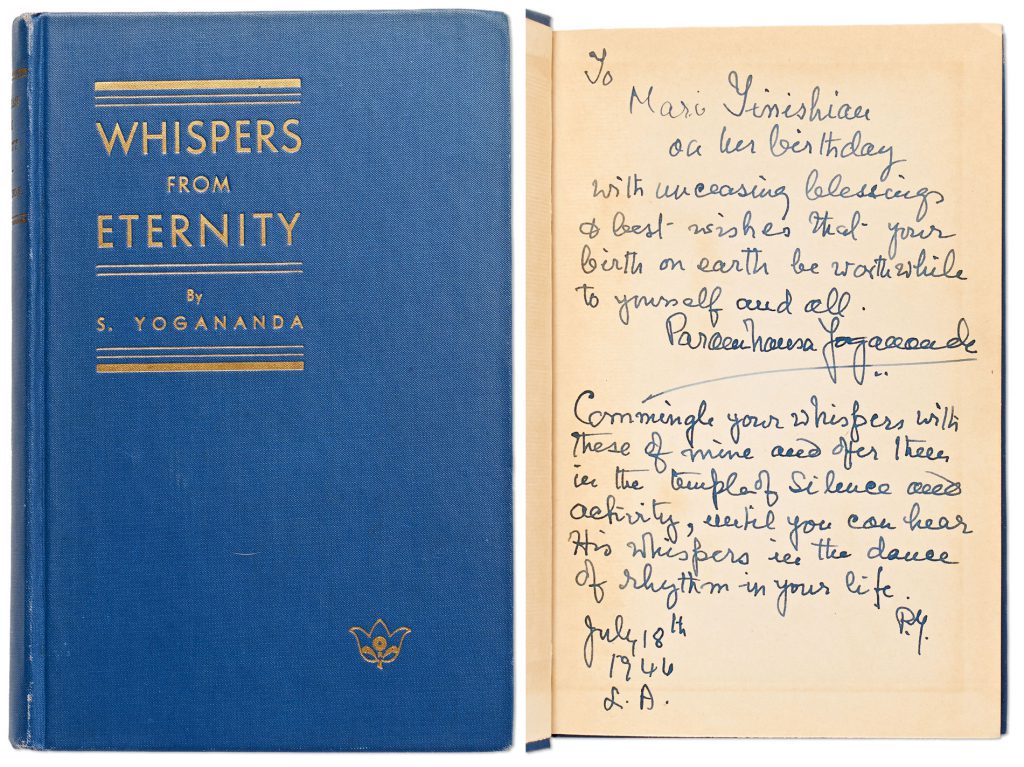 WHISPERS
FROM
ETERNITY
By
S. YOGANANDA
To
Mari Yinishian
on her birthday
with unceasing blessings
& best wishes that your
birth on earth be worthwhile
to yourself and all.
Paramhansa Yogananda
Commingle your whispers with
these of mine and offer them
in the temple of Silence and
activity, until you can hear
His whispers in the dance
of rhythm in your life.
P.Y.
July 18th
1946
L.A.